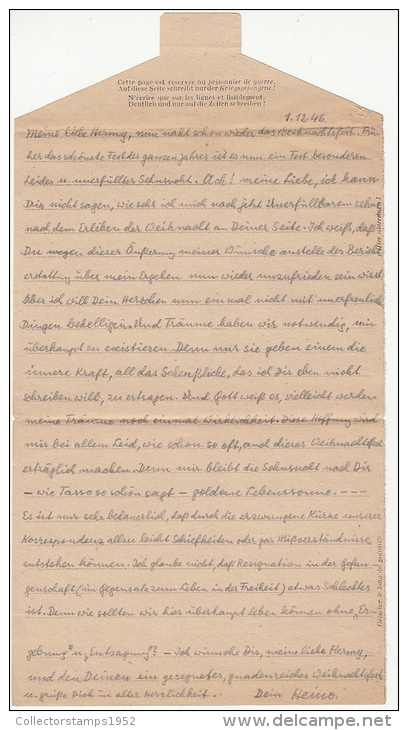 Cette page est réservée au prisonnier de guerre.
Auf diese Seite schreibt nur der Kriegsgefangene!
N'écrire que sur les lignes et lisiblement.
Deutlich und nur auf die Zeilen schreiben!
1.12.46.
Meine liebe Hermy, nun naht schon wieder das Weihnachtsfest. Frü-
her das schönste Fest des ganzen Jahres ist es nun ein Fest besonderen
Leides u. unerfüllter Sehnsucht. Ach! meine Liebe, ich kann
Dir nicht sagen, wie sehr ich mich nach jetzt Unerfüllbarem sehne
nach dem Erleben der Weihnacht an Deiner Seite. Ich weiß, daß
Du wegen dieser Äußerung meiner Wünsche anstelle der Bericht-
erstattung über mein Ergehen nun wieder unzufrieden sein wirst.
Aber ich will Dein Herzchen nun einmal nicht mit unerfreulichen
Dingen behelligen. Und Träume haben wir notwendig, um
überhaupt zu existieren. Denn nur sie geben einem die
innere Kraft, all das Scheußliche, das ich Dir eben nicht
schreiben will, zu ertragen. Und Gott weiß es, vielleicht werden
meine Träume noch einmal Wirklichkeit. Diese Hoffnung wird
mir bei allem Leid, wie schon so oft, auch dieses Weihnachtsfest
erträglich machen. Denn mir bleibt die Sehnsucht nach Dir
– wie Tasso so schön sagt – goldene Lebenssonne. – – –
Es ist nur sehr bedauerlich, daß durch die erzwungene Kürze unserer
Korrespondenz allzu leicht Schiefheiten oder gar Mißverständnisse
entstehen können. Ich glaube nicht, daß Resignation in der Gefan-
genschaft (im Gegensatz zum Leben in der Freiheit) etwas Schlechtes
ist. Denn wie sollten wir hier überhaupt leben können ohne „Er-
gebung" u. Entsagung"? – Ich wünsche Dir, meine liebe Hermy,
und den Deinen ein gesegnetes, gnadenreiches Weihnachtsfest
u. grüße Dich in alter Herzlichkeit. Dein Heino.
Détacher le long du pointillé
Collectorstamps1952